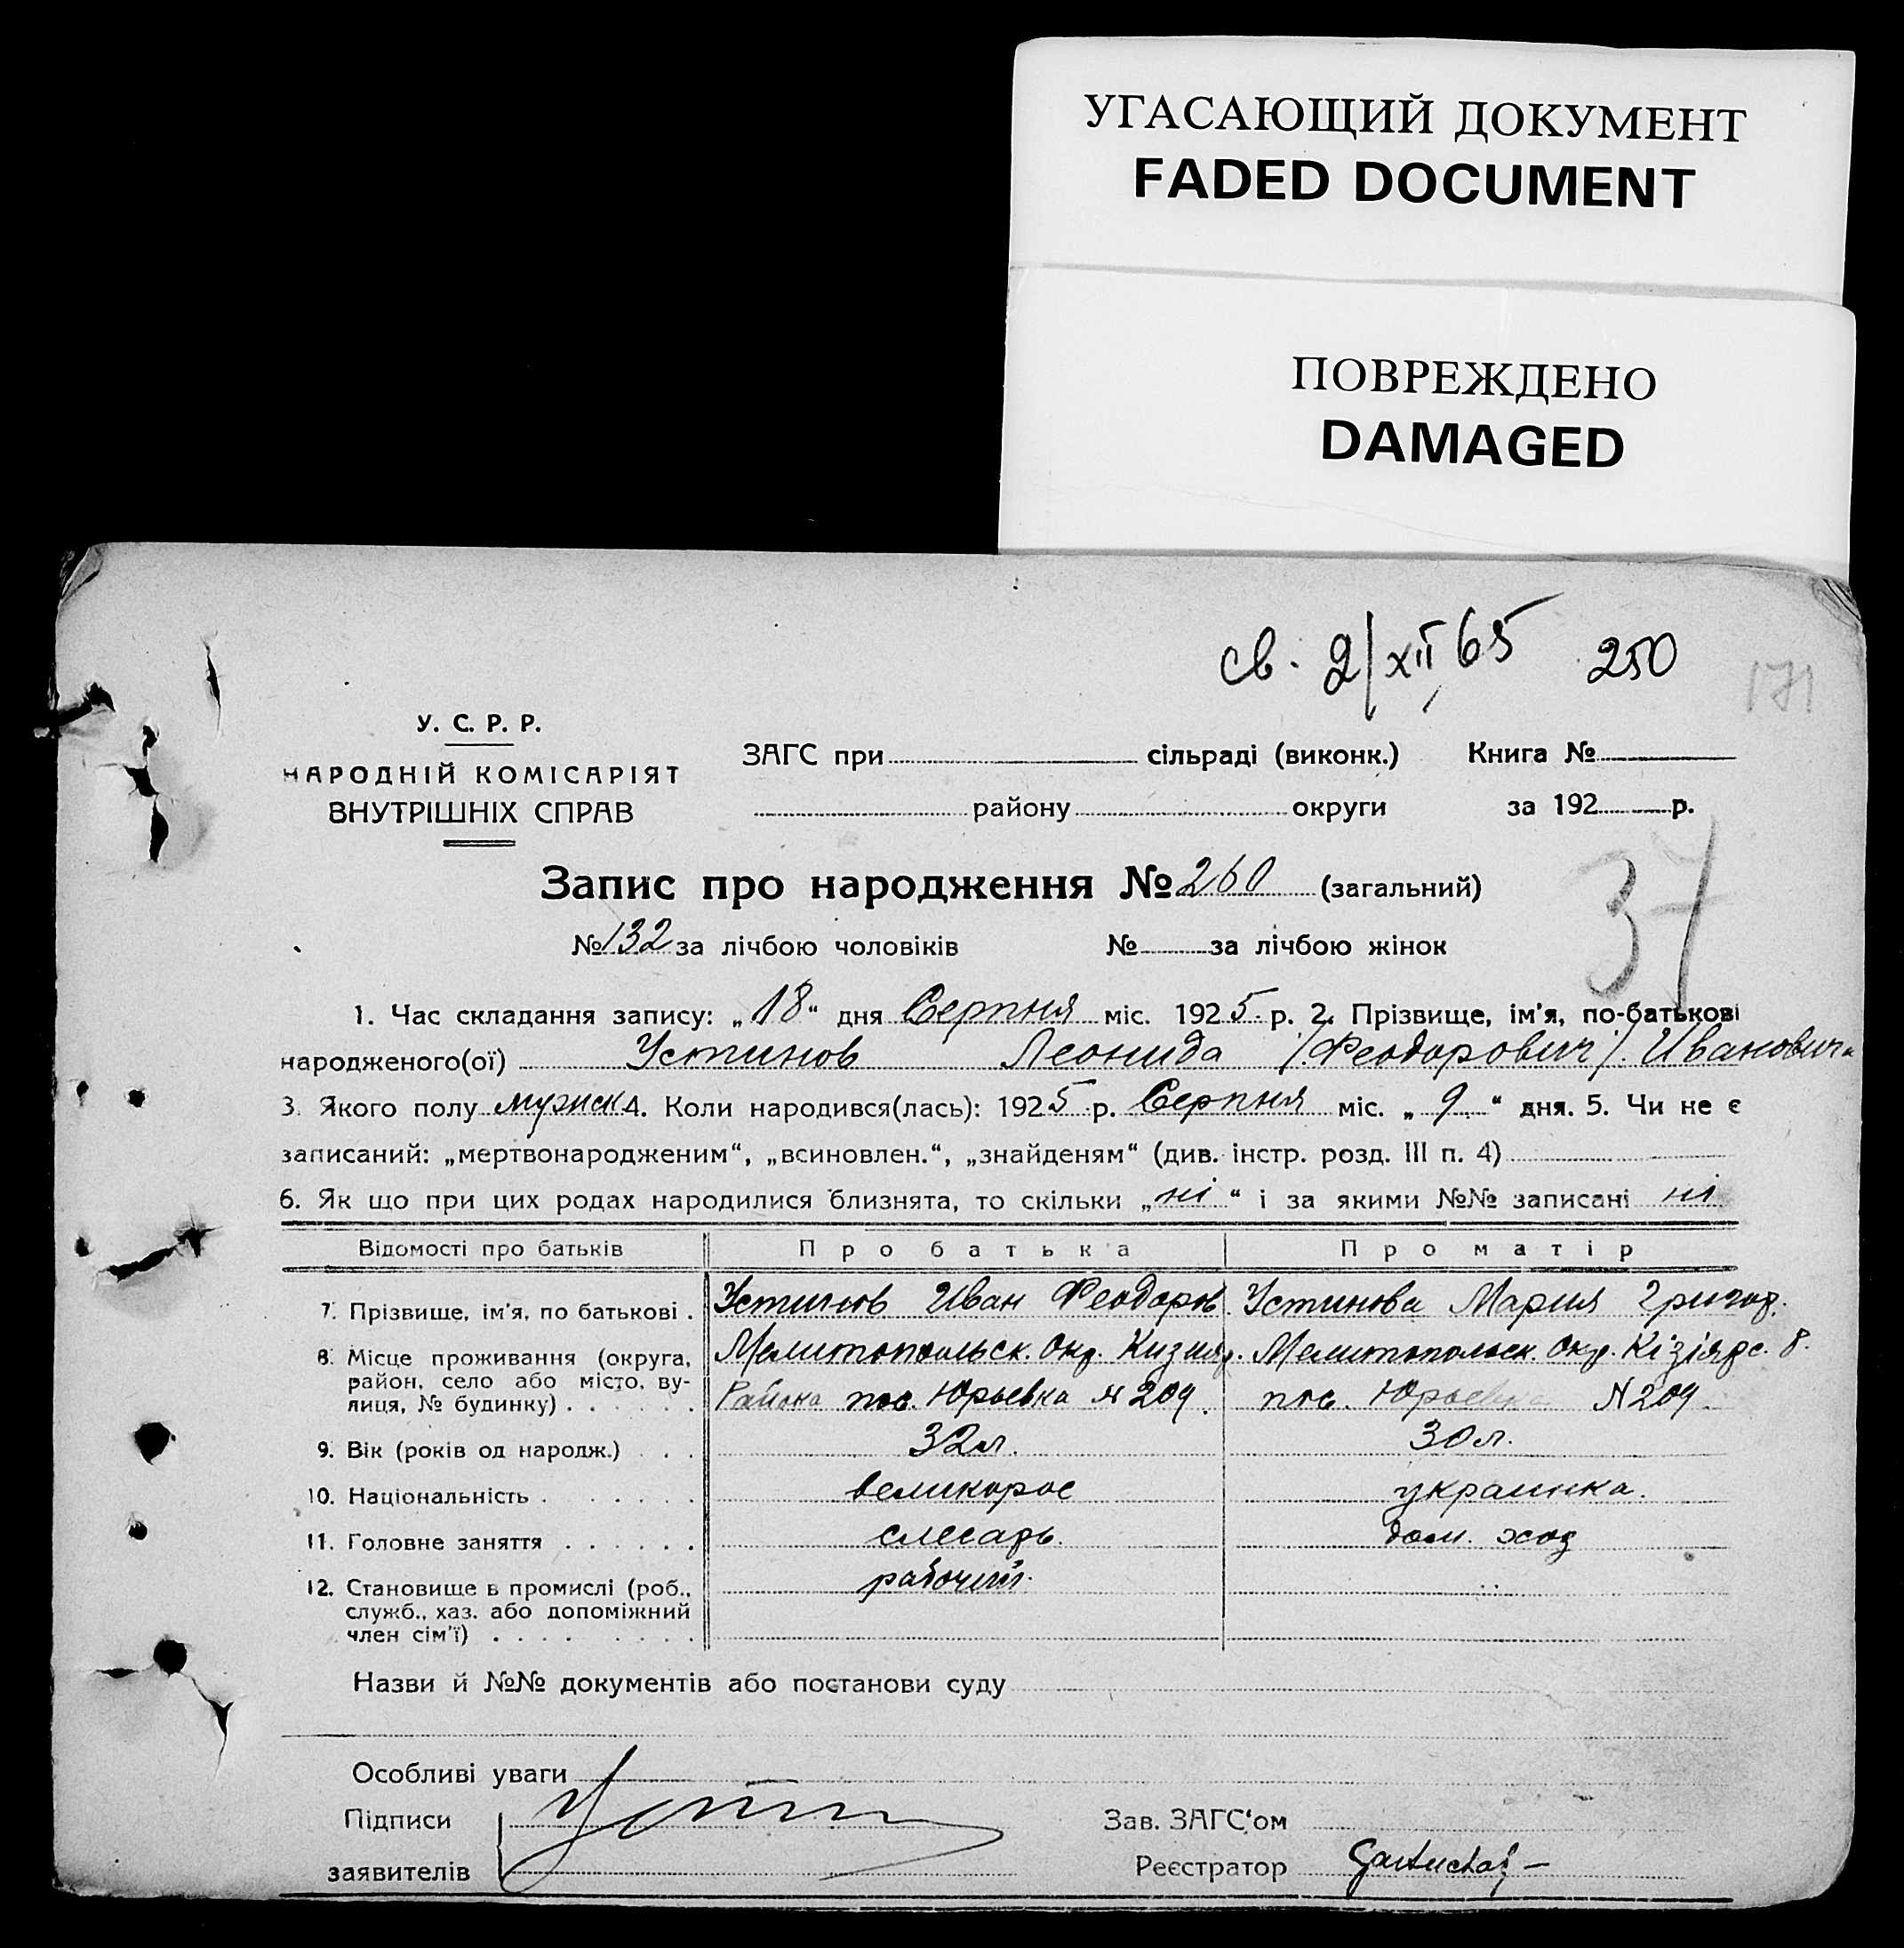 УГАСАЮЩИЙ ДОКУМЕНТ
FADED DOCUMENT
ПОВРЕЖДЕНО
DAMAGED
св. 2/XII 65 250 171
У. С. Р. Р.
НАРОДНІЙ КОМІСАРІЯТ
ВНУТРІШНІХ СПРАВ
ЗАГС при сільраді (виконк.) Книга №
району округи за 192 р.
37
Запис про народження № 260 (загальний)
№ 132 за лічбою чоловіків № за лічбою жінок
1. Час складання запису: „18“ дня Серпня міс. 1925 р. 2. Прізвище, ім'я, по-батькові
народженого(ої) Устинов Леонида /Феодорович/. Ивановича
3. Якого полу мужск 4. Коли народився(лась): 1925 р. Серпня міс. „9“ дня. 5. Чи не є
записаний: „мертвонародженим“, „всиновлен.“, „знайденям“ (див. інстр. розд. III п. 4)
6. Як що при цих родах народилися близнята, то скільки „ні“ і за якими №№ записані ні
Відомості про батьків Про батька Про матір
7. Прізвище, ім'я, по батькові . Устинов Иван Феодоров. Устинова Мария Григор.
8. Місце проживання (округа, Мелитопольск. Окр. Кизияр. Мелитопольск. Окр. Кізіярс. Р.
район, село або місто, ву-
лиця, № будинку) . . . . . . Района пос. Юрьевка N 209. пос. Юрьевка N 209.
9. Вік (років од народж.) . . . 32 л. 30 л.
10. Національність . . . . . . . великорос украинка.
11. Головне заняття . . . . . . слесарь. дом. хоз
12. Становище в промислі (роб., рабочий.
служб., хаз. або допоміжний
член сім'ї) . . . . . . . . .
Назви й №№ документів або постанови суду
Особливі уваги
Підписи Зав. ЗАГС'ом
заявителів Реєстратор